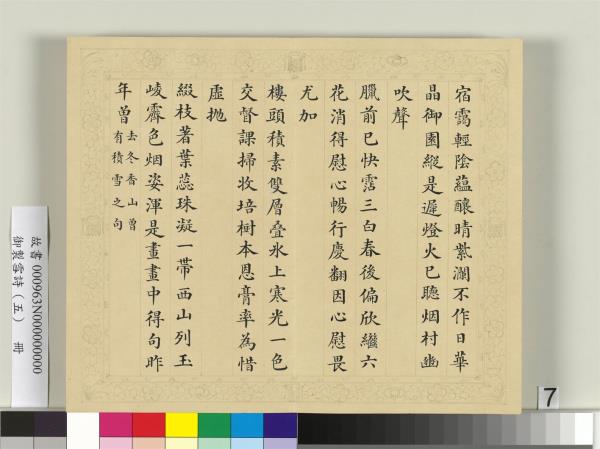 宿靄輕陰蘊釀晴紫瀾不作日華
晶御園縱是遲燈火已聽烟村豳
吹聲
臘前已快霑三白春後偏欣繼六
花消得慰心暢行慶翻因心慰畏
尤加
樓頭積素雙層疊氷上寒光一色
交督課掃收培樹本恩膏率為惜
虛拋
綴枝著葉蕊珠凝一帶西山列玉
崚霽色烟姿渾是畫畫中得句昨
年曽
去冬香山曽
有積雪之句
故書 000963N000000000
御製雪詩(五) 冊
7